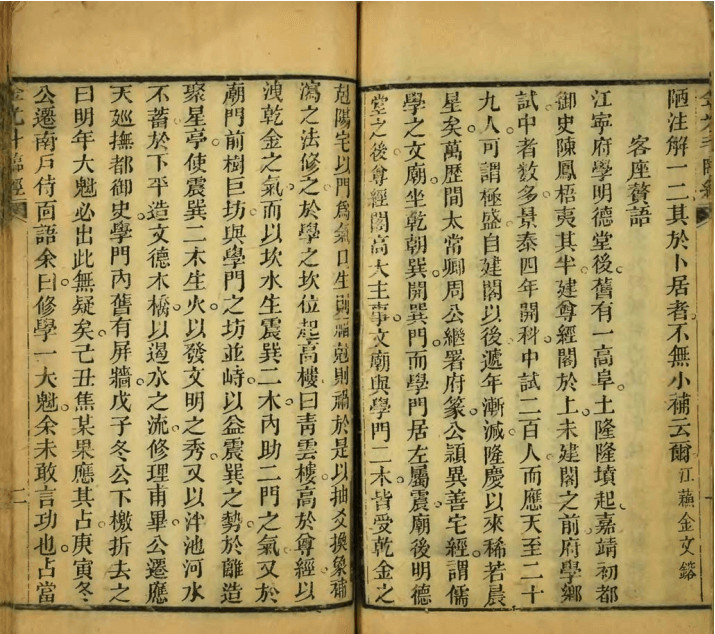 陋注解一二其於卜居者不無小補云爾 江蘓金文鎔
客座贅語
江寧府學明德堂後舊有一高阜土隆隆墳起嘉靖初都
御史陳鳳梧夷其半建尊經閣於上未建閣之前府學鄉
試中者数多景泰四年開科中試二百人而應天至二十
九人可謂極盛自建閣以後遞年漸減隆慶以來稀若晨
星矣萬歷間太常卿周公繼署府篆公頴異善宅經謂儒
學之文廟坐乾朝巽開巽門而學門居左屬震廟後明德
堂之後尊經閣高大主事文廟與學門二木皆受乾金之
尅陽宅以門爲氣口生則福尅則禍於是以抽爻換象補
瀉之法修之於學之坎位起高樓曰青雲樓高於尊經以
洩乾金之氣而以坎水生震巽二木內助二門之氣又於
廟門前樹巨坊與學門之坊並峙以益震巽之勢於離造
聚星亭使震巽二木生火以發文明之秀又以泮池河水
不蓄於下平造文德木橋以遏水之流修理甫畢公遷應
天廵撫都御史學門內舊有屏牆戊子冬公下檄折去之
曰明年大魁必出此無疑矣己丑焦某果應其占庚寅冬
公遷南戶侍面語余曰修學一大魁余未敢言功也占當
二